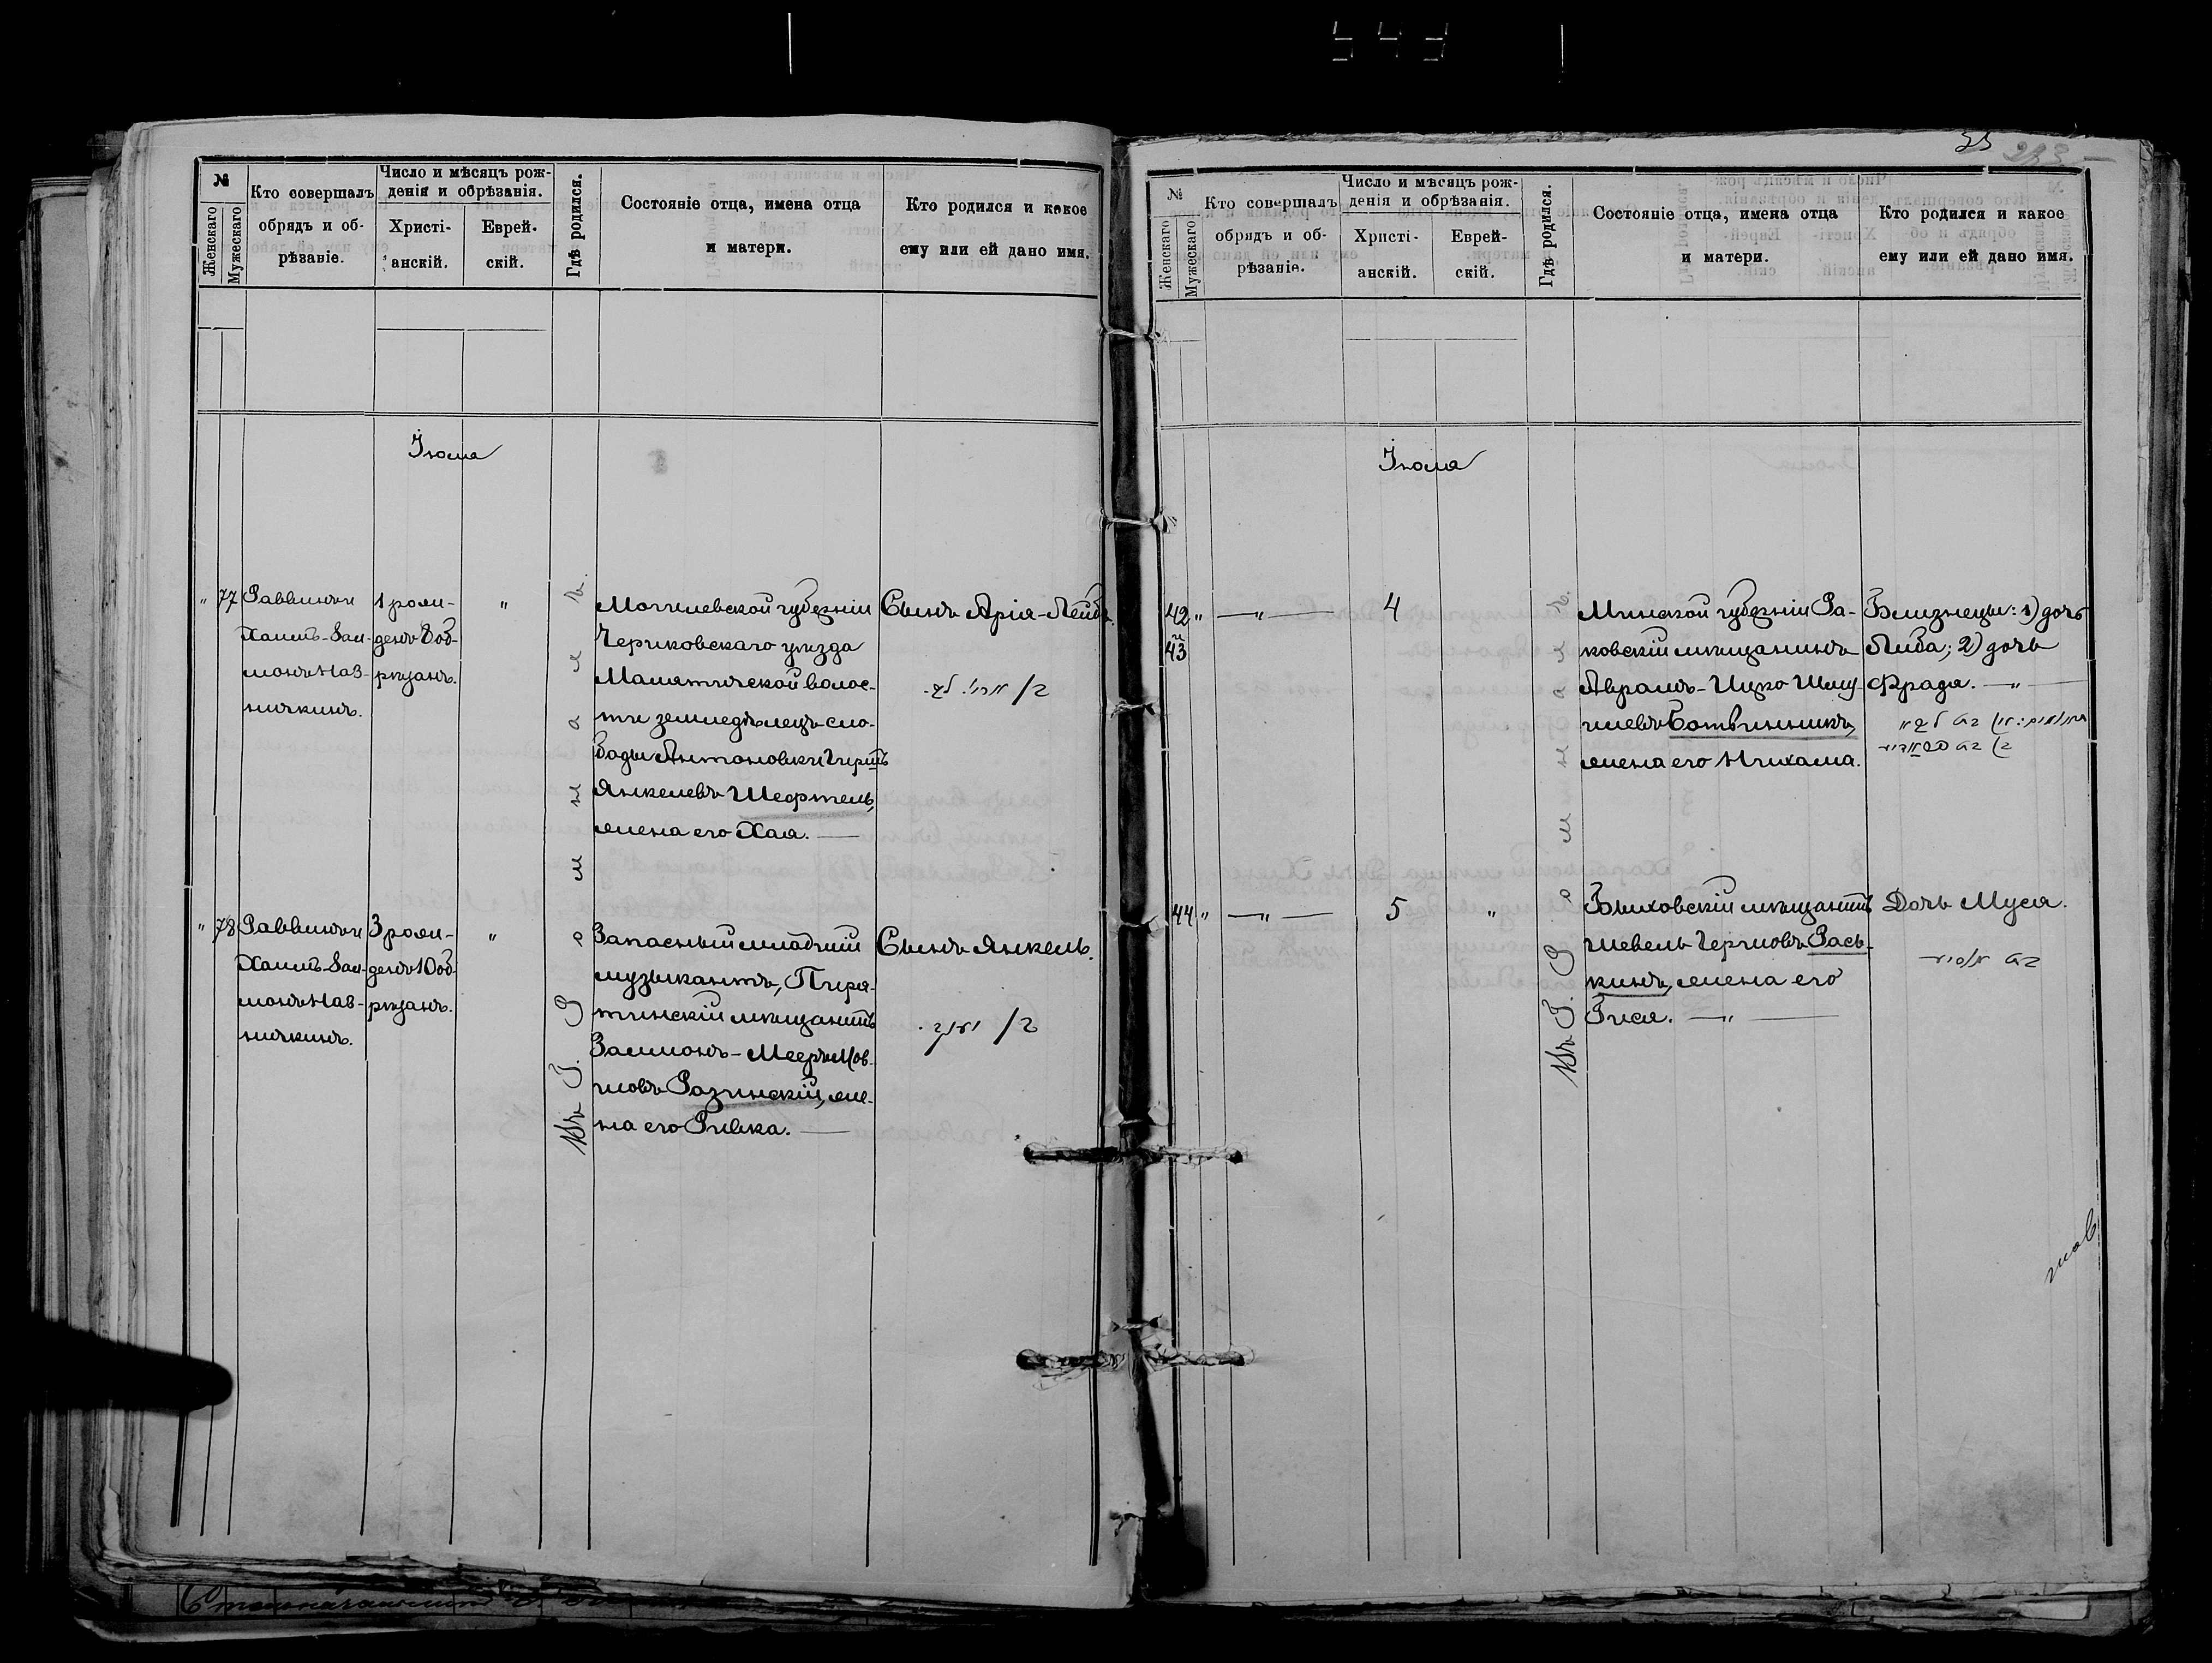 543
33
293
№
Женскаго
Мужескаго
Кто совершалъ
обрядъ и об-
рѣзаніе.
Число и мѣсяцъ рож-
денія и обрѣзанія.
Христі-
анскій.
Еврей-
скій.
Гдѣ родился.
Состояніе отца, имена отца
и матери.
Кто родился и какое
ему или ей дано имя.
Іюля
" 77
Раввинъ и
Хаимъ-Зал-
монъ Нав-
ничкинъ.
1 рож-
денъ 8 об-
рѣзанъ.
"
Въ г. Гомлѣ
Могилевской губерніи
Чериковскаго уѣзда
Малятичской волос-
ти земледѣлецъ сло-
боды Антоновки Гиршъ
Янкелевъ Шефтель,
жена его Хая. —
Сынъ Арія-Лейба.
בן ארי' ליב.
" 78
Раввинъ и
Хаимъ-Зал-
монъ Нав-
ничкинъ.
3 рож-
денъ 10 об-
рѣзанъ.
"
Запасный младшій
музыкантъ, Пиря-
тинскій мѣщанинъ
Залмонъ-Мееръ Мов-
шовъ Разинскій, же-
на его Ривка. —
Сынъ Янкель.
בן יעקב.
№
Женскаго
Мужескаго
Кто совершалъ
обрядъ и об-
рѣзаніе.
Число и мѣсяцъ рож-
денія и обрѣзанія.
Христі-
анскій.
Еврей-
скій.
Гдѣ родился.
Состояніе отца, имена отца
и матери.
Кто родился и какое
ему или ей дано имя.
Іюля
42 "
и
43
— " —
4
Минской губерніи Ра-
ковскій мѣщанинъ
Абрамъ-Ицко Шму-
илевъ Ботвинникъ,
жена его Нихама.
Близнецы: 1) дочь
Либа; 2) дочь
Фрада. — " —
44 "
— " —
5
"
Быховскій мѣщанинъ
Шевель Гершовъ Рась-
кинъ, жена его
Гися. — " —
Дочь Муся.
בת מוסיא